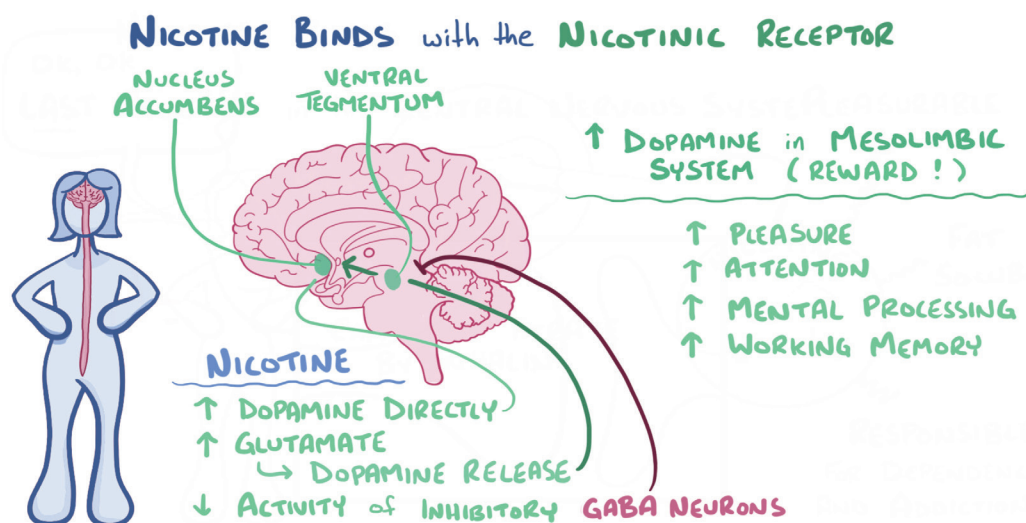 NICOTINE BINDS with the NICOTINIC RECEPTOR
NUCLEUS
ACCUMBENS
VENTRAL
TEGMENTUM
↑ DOPAMINE in MESOLIMBIC
SYSTEM (REWARD!)
↑ PLEASURE
↑ ATTENTION
↑ MENTAL PROCESSING
↑ WORKING MEMORY
NICOTINE
↑ DOPAMINE DIRECTLY
↑ GLUTAMATE
↳ DOPAMINE RELEASE
↓ ACTIVITY of INHIBITORY GABA NEURONS
LAST
NERVOUS SYSTEM
PLEASURABLE
FAT
RESPONSIBLE